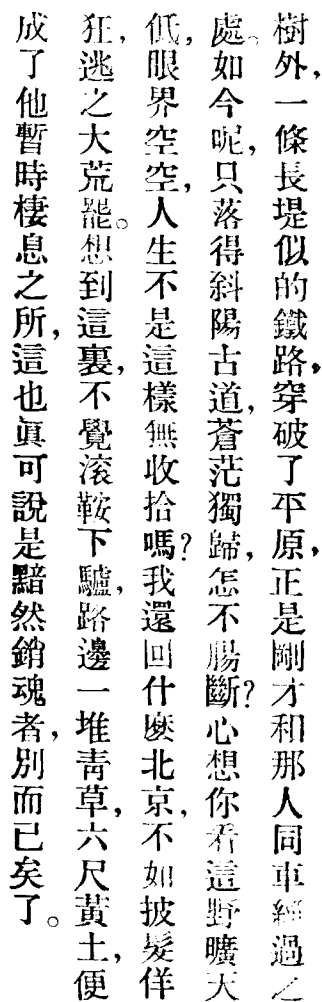 樹外，一條長堤似的鐵路，穿破了平原，正是剛才和那人同車經過之
處。如今呢，只落得斜陽古道，蒼茫獨歸，怎不腸斷？心想你看這野曠天
低，眼界空空，人生不是這樣無收拾嗎？我還回什麽北京，不如披髮佯
狂，逃之大荒罷。想到這裏，不覺滚鞍下驢，路邊一堆靑草，六尺黃土，便
成了他暫時棲息之所，這也眞可說是黯然銷魂者，別而已矣了。